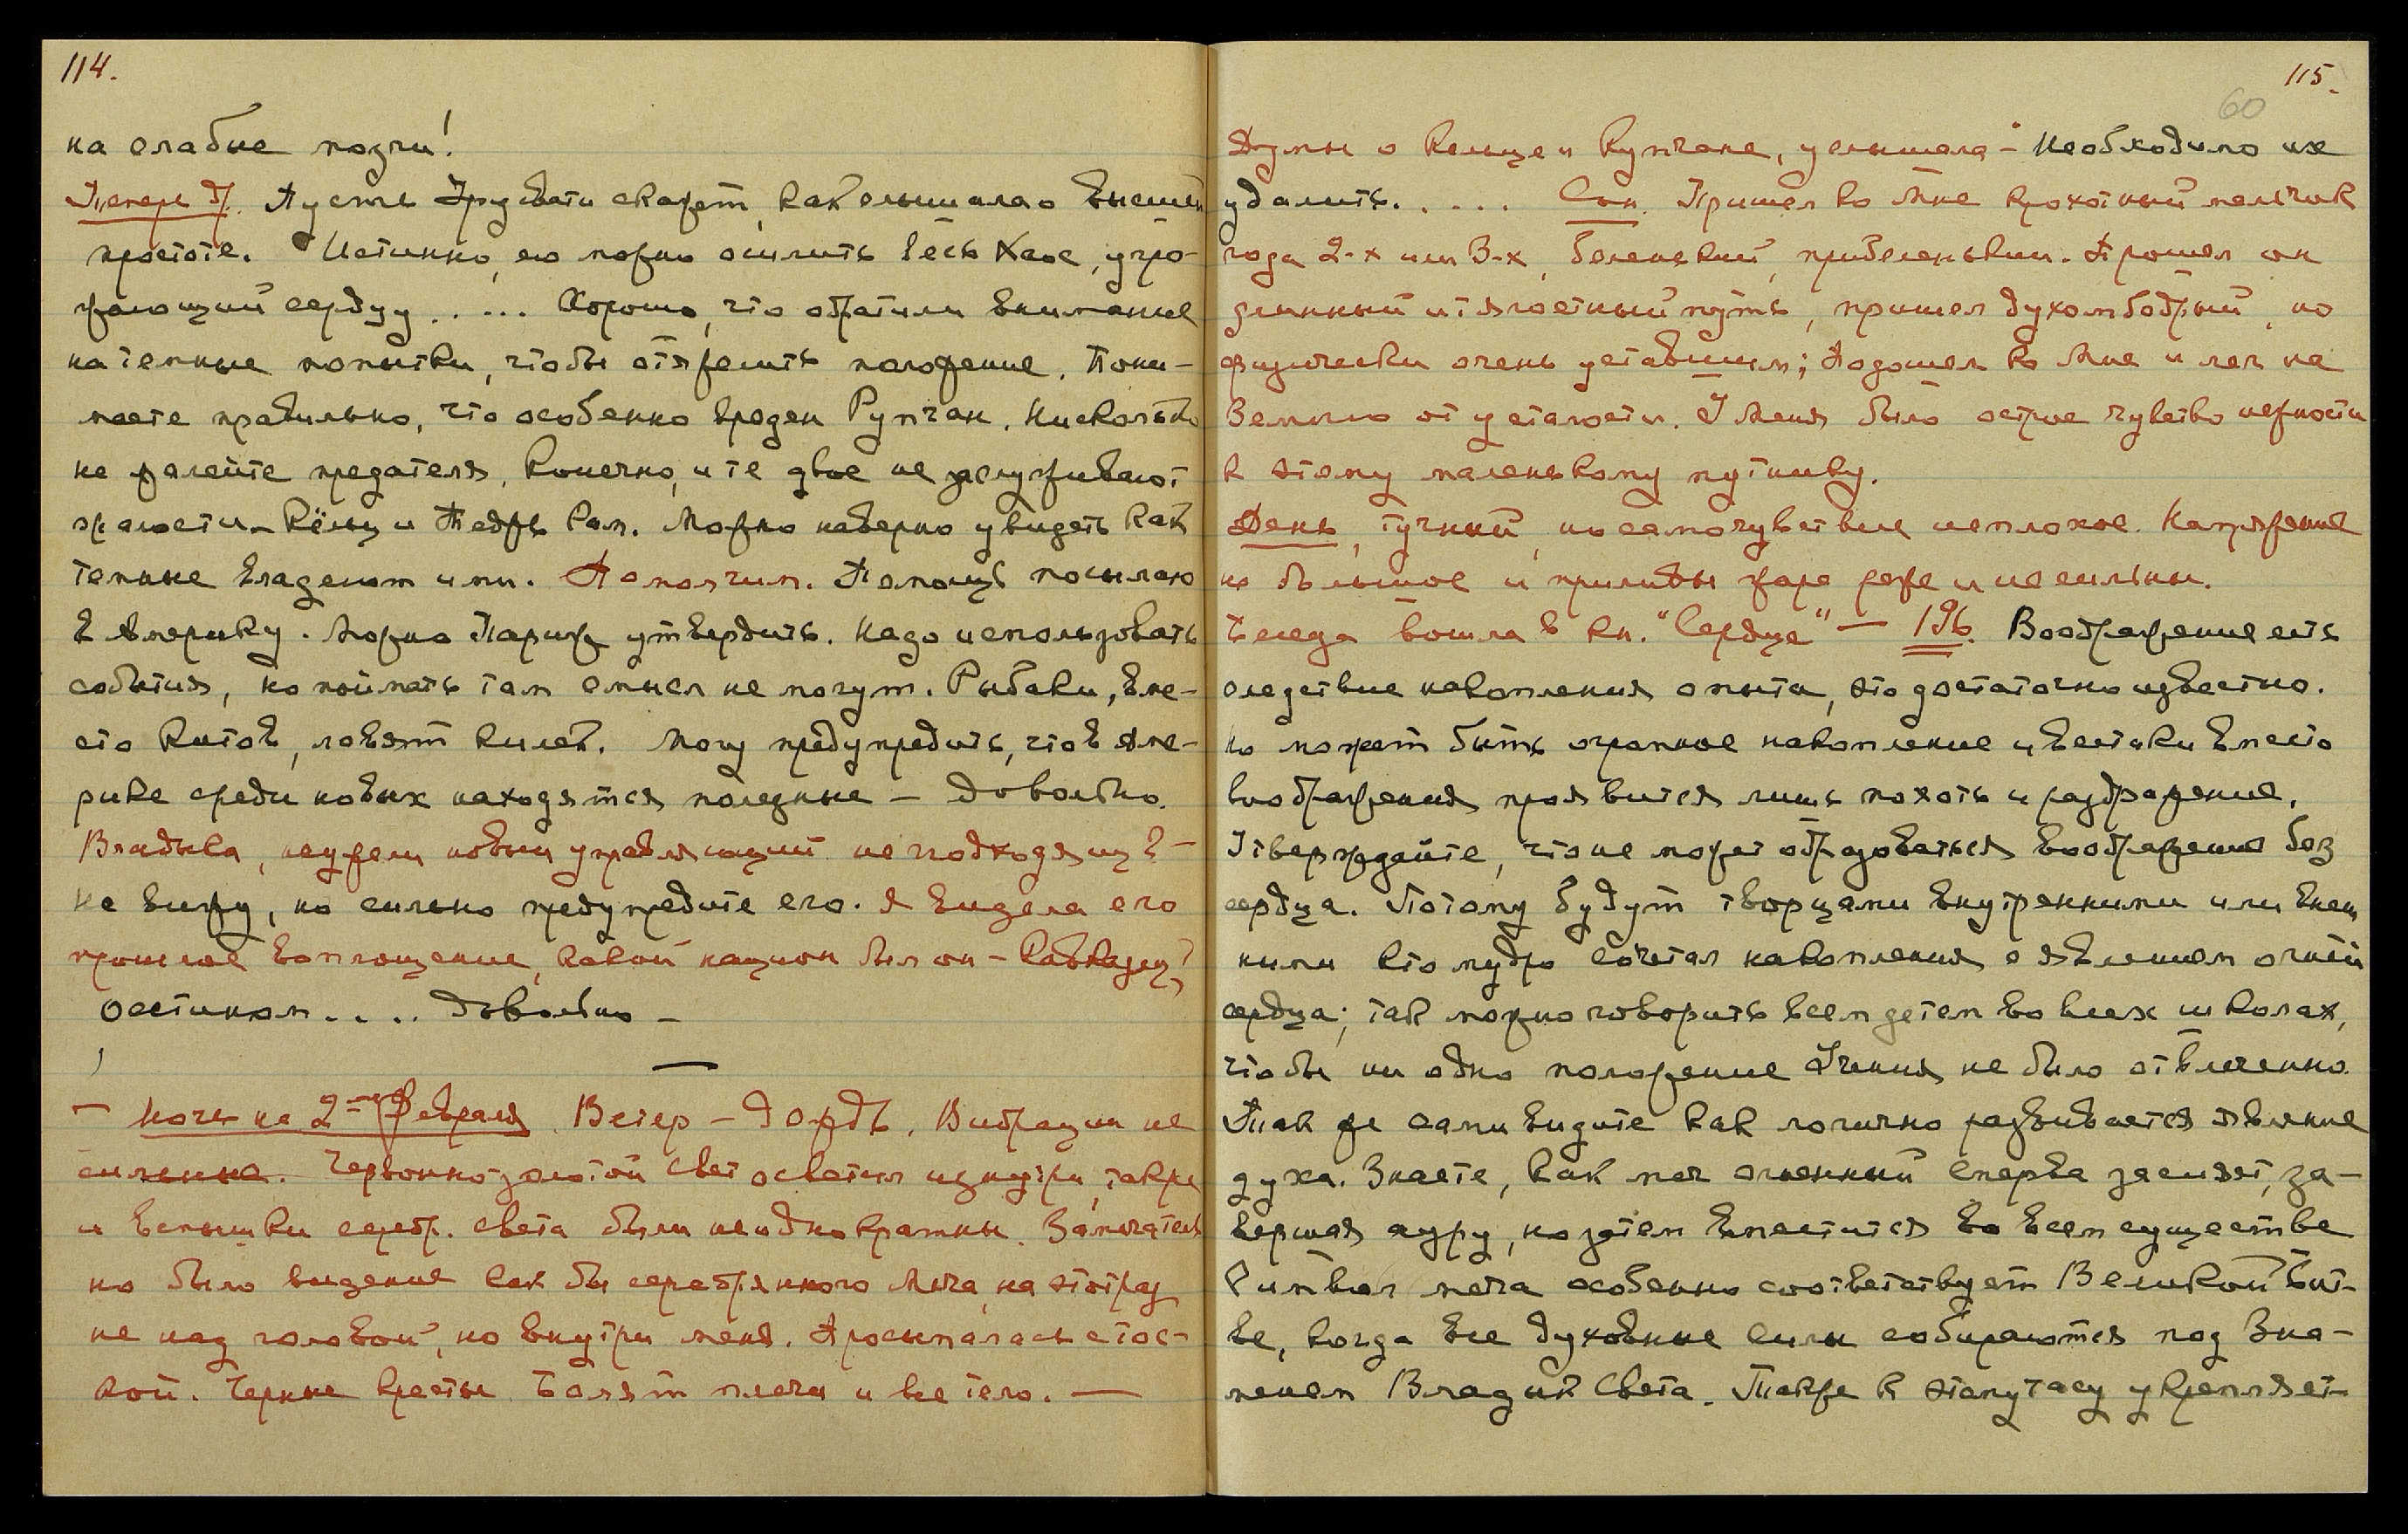 114.
на слабые мозги!
Теперь др. Пусть Урусвати скажет, как слышала о высшей
простоте. Истинно, ею можно осилить весь Хаос, угро-
жающий сердцу ..... Хорошо, что обратили внимание
на темные попытки, чтобы отяжелить положение. Пони-
маете правильно, что особенно вреден Румчан. Нисколько
не жалейте предателя. Конечно, и те двое не заслуживают
жалости – Кёльц и Тедрь Рам. Можно наверно увидеть как
темные владеют ими. Помолчим. Помощь посылаю
в Америку. Можно Париж утвердить. Надо использовать
события, но поймать там смысл не могут. Рыбаки, вме-
сто китов, ловят килек. Могу предупредить, что в Аме-
рике среди новых находятся полезные – Довольно.
Владыка, неужели новый управляющий не подходящ? –
Не вижу, но сильно предупредите его. Я видела его
прошлое воплощение, какой национ. был он – Кавказец?
Осетином .... Довольно –
—
– Ночь на 2-ое Февраля. Ветер – дождь. Вибрации не
сильные. Червонно-золотой свет осветил изнутри, также
и вспышки серебр. света были неоднократны. Замечатель
но было видение как бы серебрянного меча, на этот раз
не над головой, но внутри меня. Просыпалась с тос-
кой. Черные кресты. Болят плечи и все тело. —
115.
60
Думы о Кельце и Румчане, услышала – Необходимо их
удалить. .... Сон. Пришел ко Мне крохотный мальчик
года 2-х или 3-х, беленький, прибеленький. Прошел он
длинный и тягостный путь, пришел духом бодрый, но
физически очень уставшим; Подошел ко Мне и лег на
Землю от усталости. У Меня было острое чувство нежности
к этому маленькому путнику.
День, тучный, но самочувствие неплохое. Напряжение
не большое и приливы жара реже и не сильны.
Беседа вошла в кн. "Сердце" – 196. Воображение есть
следствие накопления опыта, это достаточно известно.
Но может быть огромное накопление и все-таки вместо
воображения проявится лишь похоть и раздражение.
Утверждайте, что не может образоваться воображение без
сердца. Потому будут творцами внутренними или внеш
ними кто мудро сочетал накопления с явлением огней
сердца; так можно говорить всем детям во всех школах,
чтобы ни одно положение Учения не было отвлеченно.
Так же сами видите как логично развивается явление
духа. Знаете, как меч огненный сперва засияет, за-
вершая ауру, но затем вместится во всем существе
Символ меча особенно соответствует Великой Бит-
ве, когда все духовные силы собираются под Зна-
менем Владык Света. Также к этому часу укрепляет-